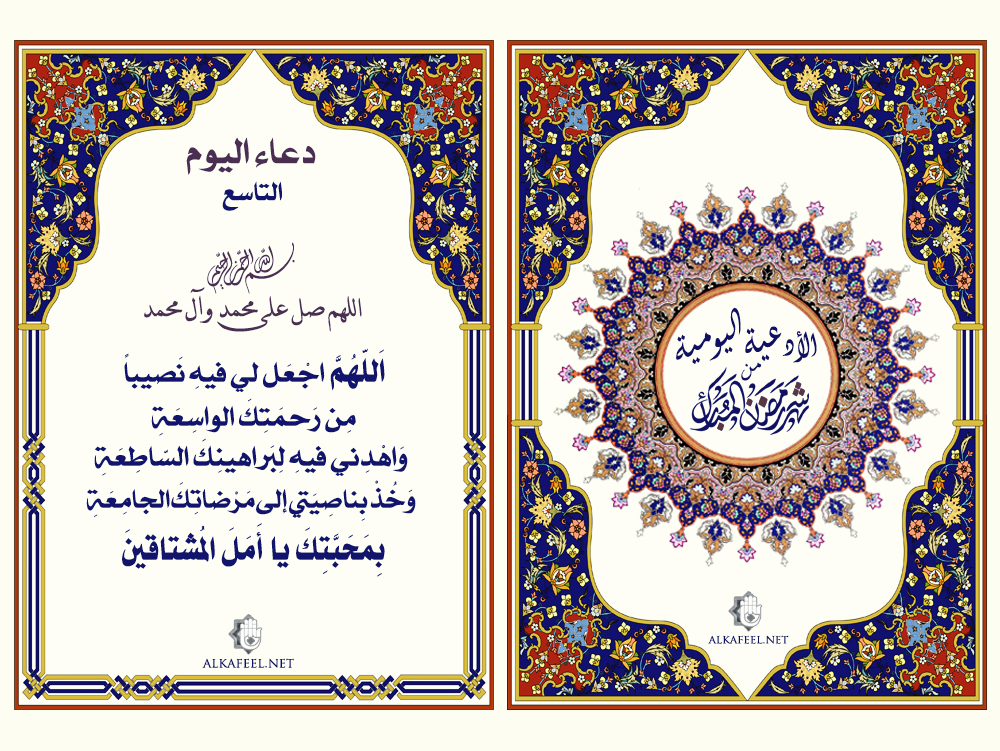 الأدعية اليومية
من
شهر رمضان المبارك
ALKAFEEL.NET
دعاء اليوم
التاسع
بسم الله الرحمن الرحيم
اللهم صل على محمد وآل محمد
اَللّهُمَّ اجْعَل لي فيهِ نَصيباً
مِن رَحمَتكَ الواسِعَةِ
وَاهْدِني فيهِ لِبَراهينِكَ السّاطِعَةِ
وَخُذْ بِناصِيَتي إلى مَرْضاتِكَ الجامِعَةِ
بِمَحَبَّتِكَ يا أَمَلَ المُشتاقينَ
ALKAFEEL.NET